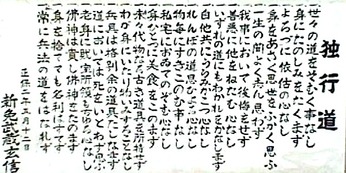 独行道
世々の道をそむく事なし
身にたのしみをたくまず
よろづに依怙の心なし
身をあさく思世をふかく思ふ
一生の間よく心思わず
我事において後悔をせず
善悪に他をねたむ心なし
いづれの道にもわかれをかなしまず
自他共にうらみかこつ心なし
れんぼの道思ひよるこころなし
物毎にすきこのむ事なし
私宅においてのぞむ心なし
身ひとつに美食をこのまず
末々代物なる古き道具所持せず
わが身にいたり物いみすることなし
兵具は格別余の道具たしなまず
道においては死をいとわず思ふ
老身に財宝所領もちゆる心なし
仏神は貴し仏神をたのまず
身を捨ても名利はすてず
常に兵法の道をはなれず
正保二年五月十二日
新免武蔵玄信